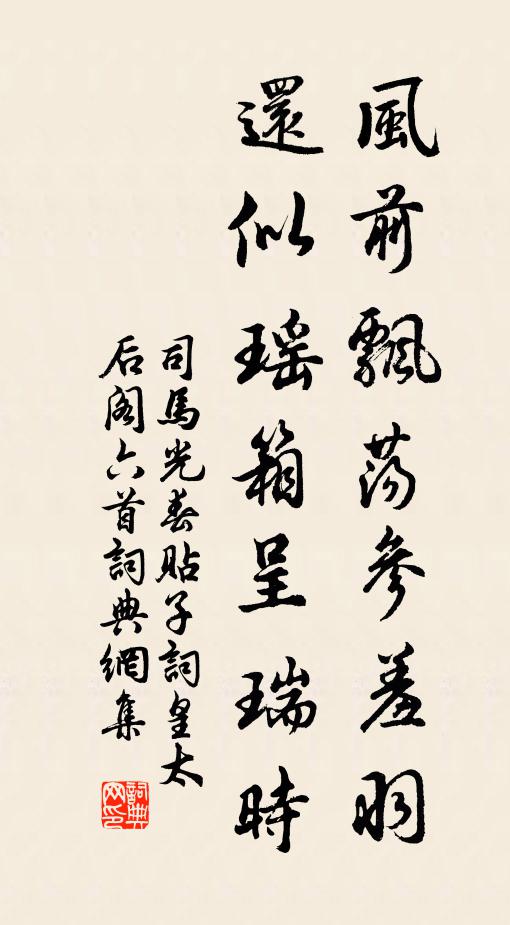 風前飄蕩參差羽
還似瑶箱呈瑞時
司馬光春貼子詞皇太
后阁六首詞典網集
詞典网印